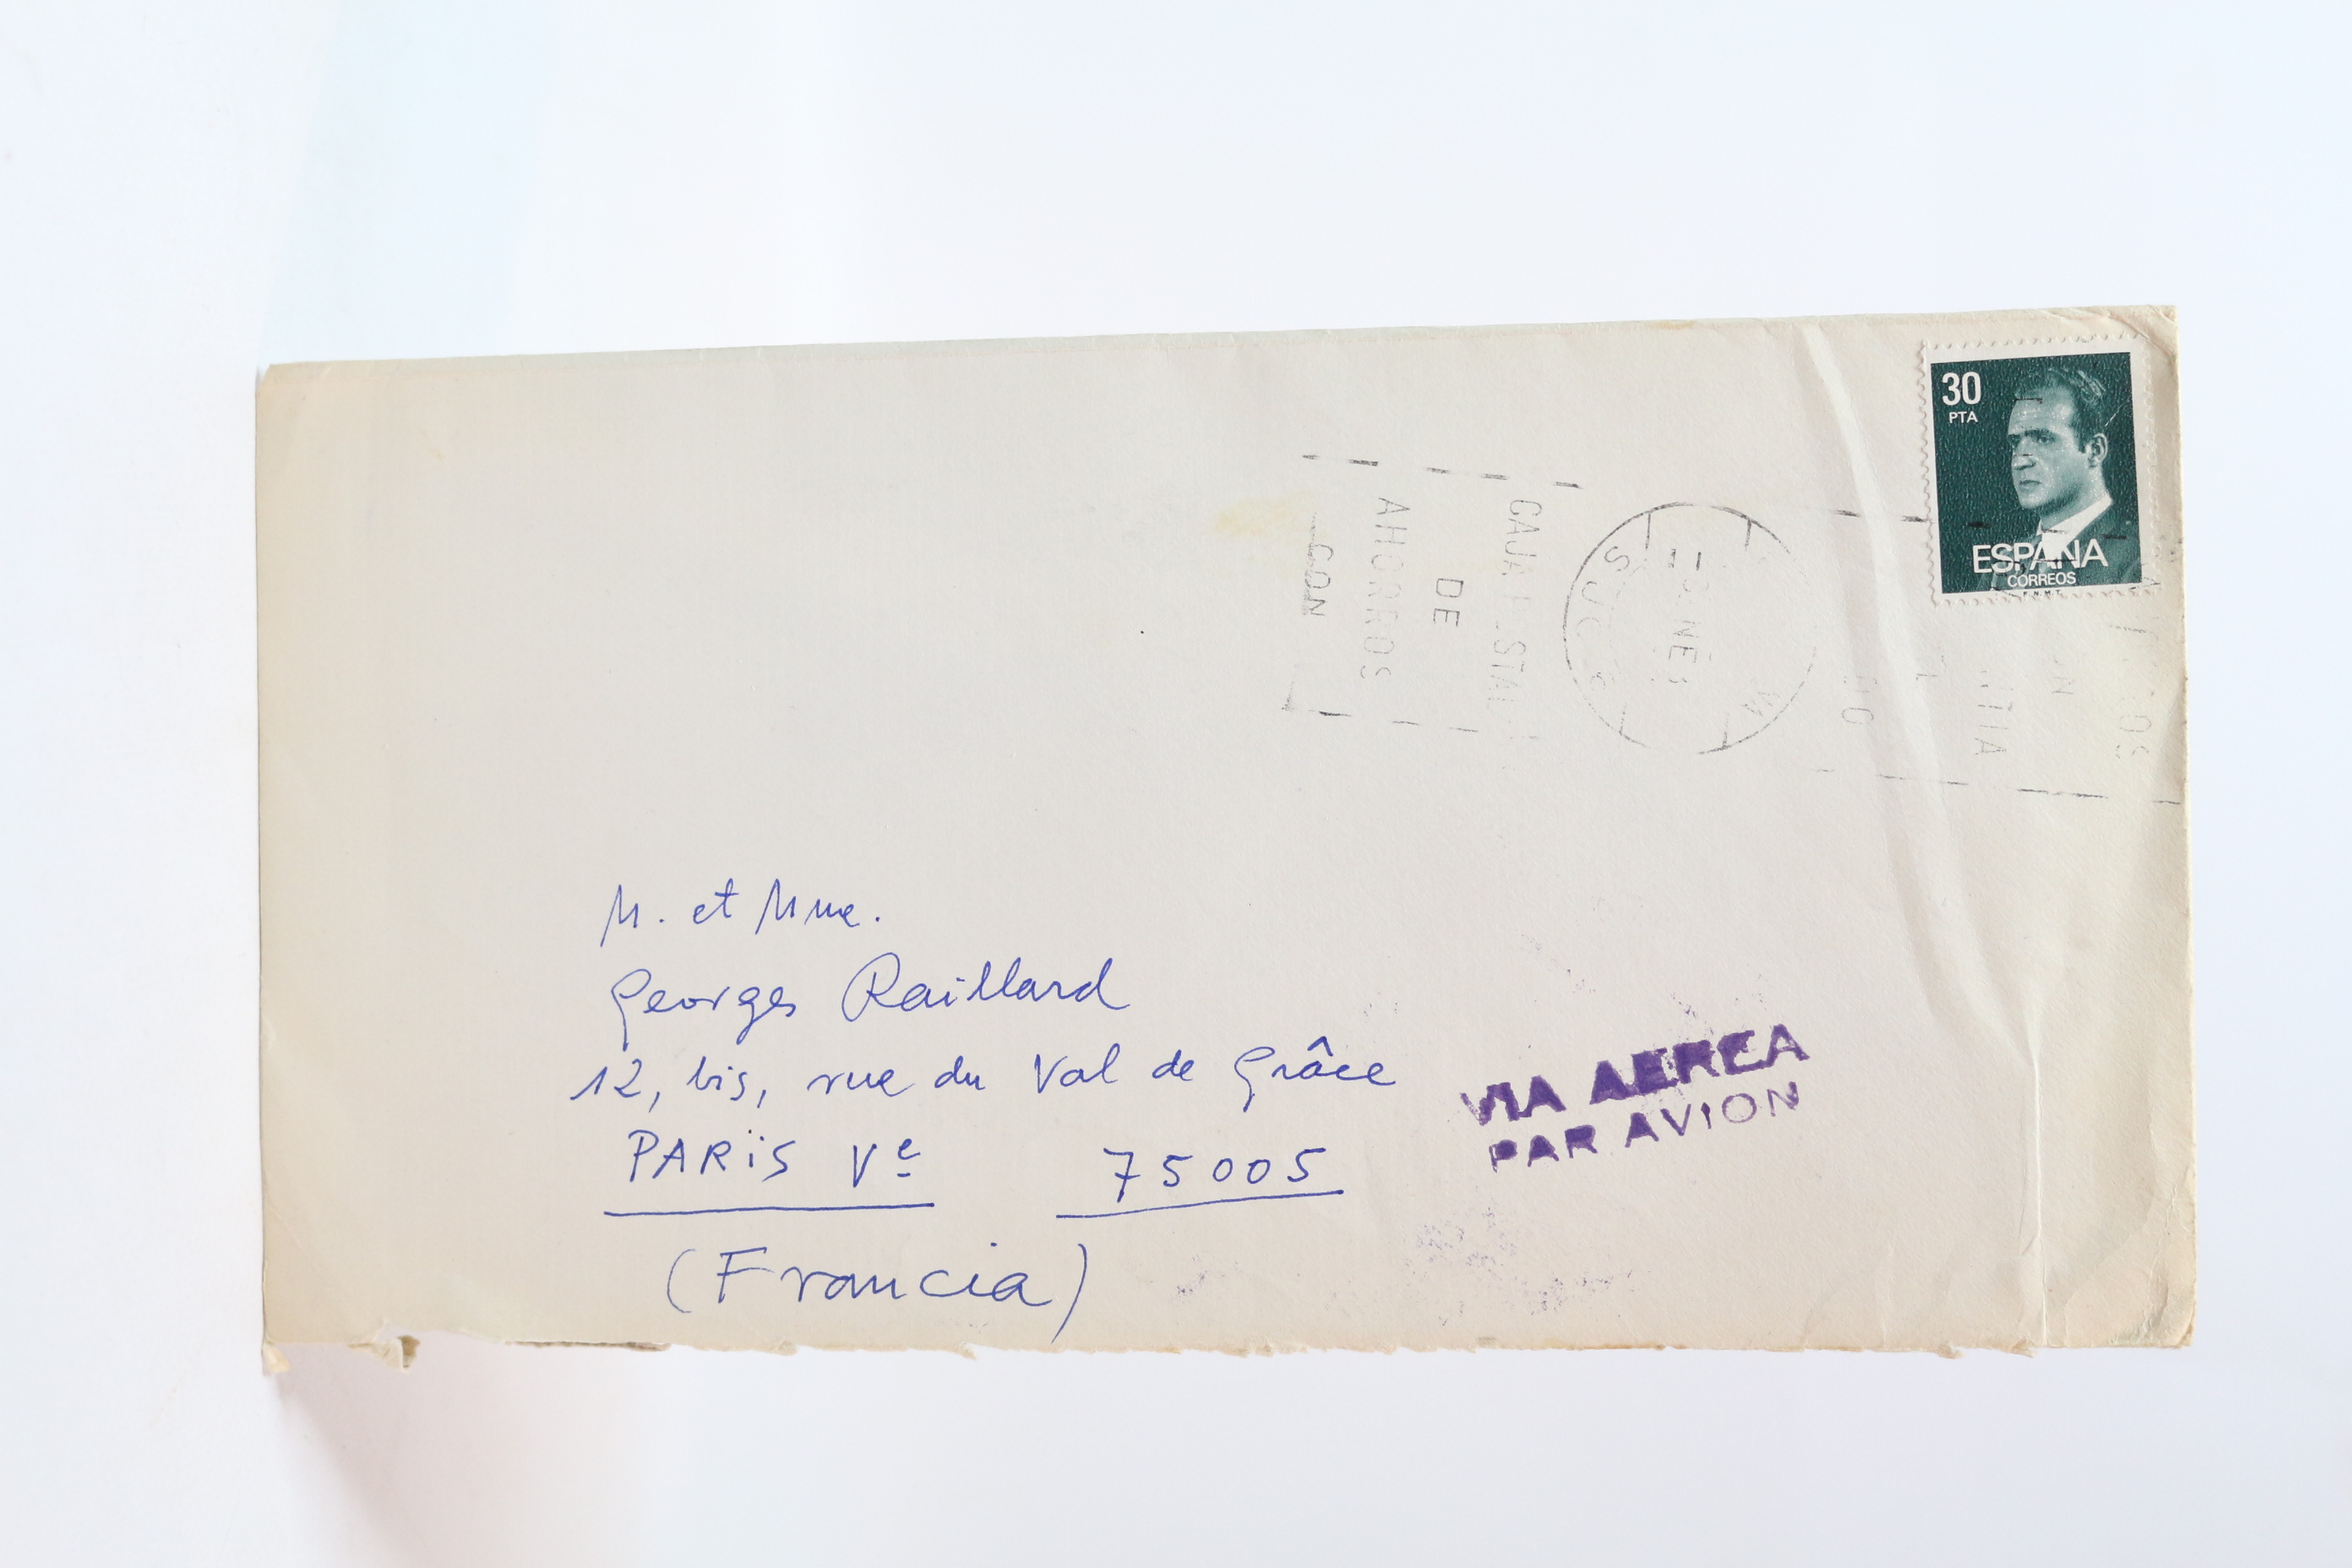 30
PTA
ESPAÑA
CORREOS
F.N.M.T.
CAJA
DE
AHORROS
CON
M. et Mme.
Georges Raillard
12, bis, rue du Val de Grâce
PARïS Ve 75005
(Francia)
VIA AEREA
PAR AVION